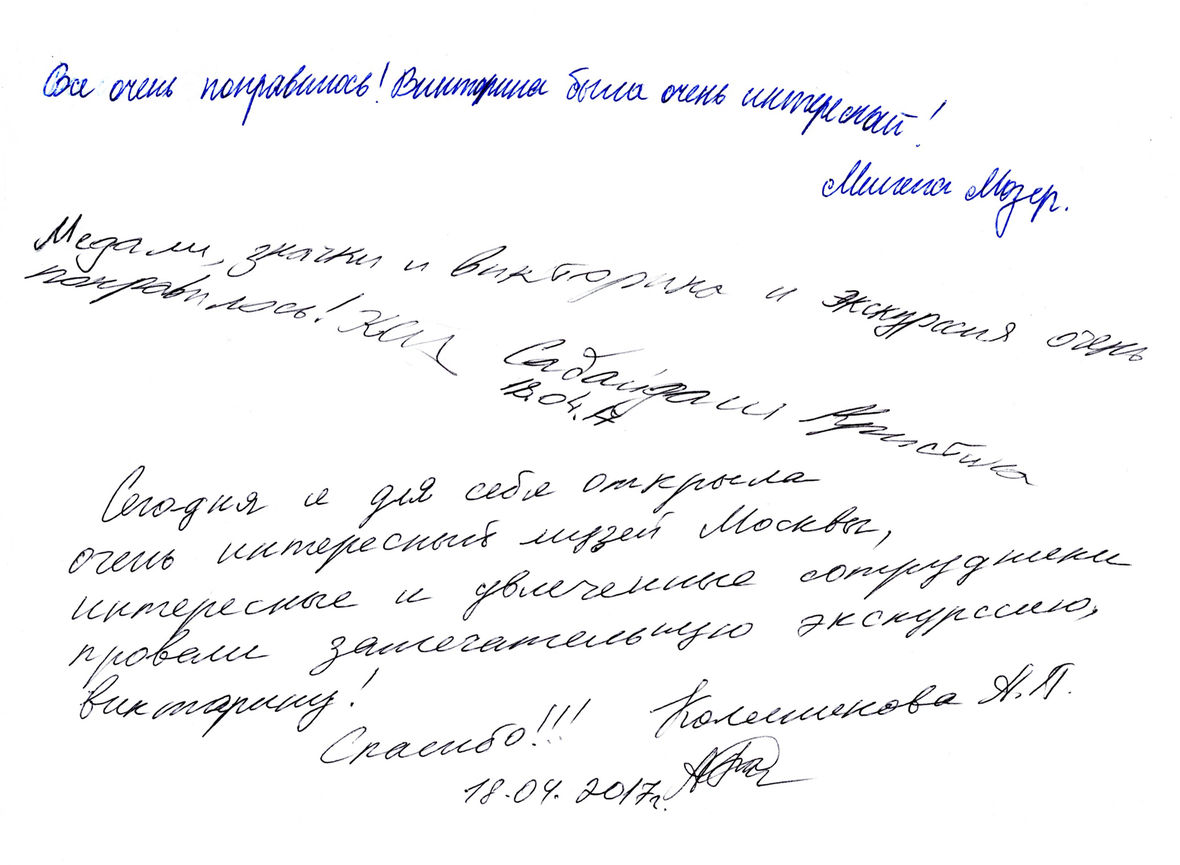 Все очень понравилось! Викторина была очень интересной!
Милена Мозер.
Медали, значки и викторина и экскурсия очень
понравилось!
Сабайдаш Кристина
18.04.17
Сегодня я для себя открыла
очень интересный музей Москвы,
интересные и увлеченные сотрудники
провели замечательную экскурссию,
виктарину!
Спасибо!!! А.П.
18.04.2017г.